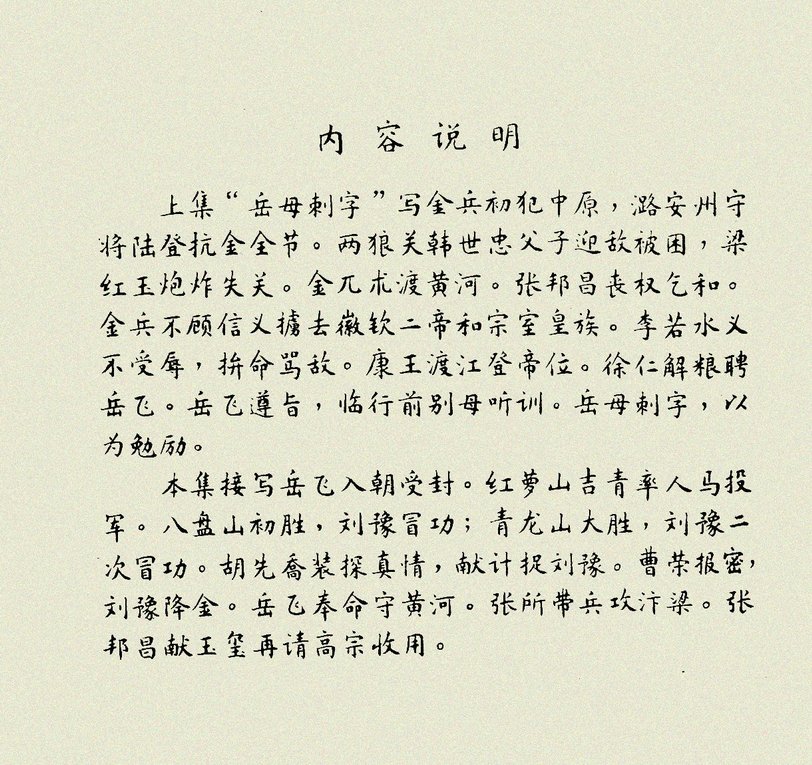 内容说明
上集“岳母刺字”写金兵初犯中原，潞安州守
将陆登抗金全节。两狼关韩世忠父子迎敌被困，梁
红玉炮炸失关。金兀朮渡黄河。张邦昌丧权乞和。
金兵不顾信义掳去徽钦二帝和宗室皇族。李若水义
不受辱，拚命骂敌。康王渡江登帝位。徐仁解粮聘
岳飞。岳飞遵旨，临行前别母听训。岳母刺字，以
为勉励。
本集接写岳飞入朝受封。红萝山吉青率人马投
军。八盘山初胜，刘豫冒功；青龙山大胜，刘豫二
次冒功。胡先喬装探真情，献计捉刘豫。曹荣报密，
刘豫降金。岳飞奉命守黄河。张所带兵攻汴梁。张
邦昌献玉玺再请高宗收用。